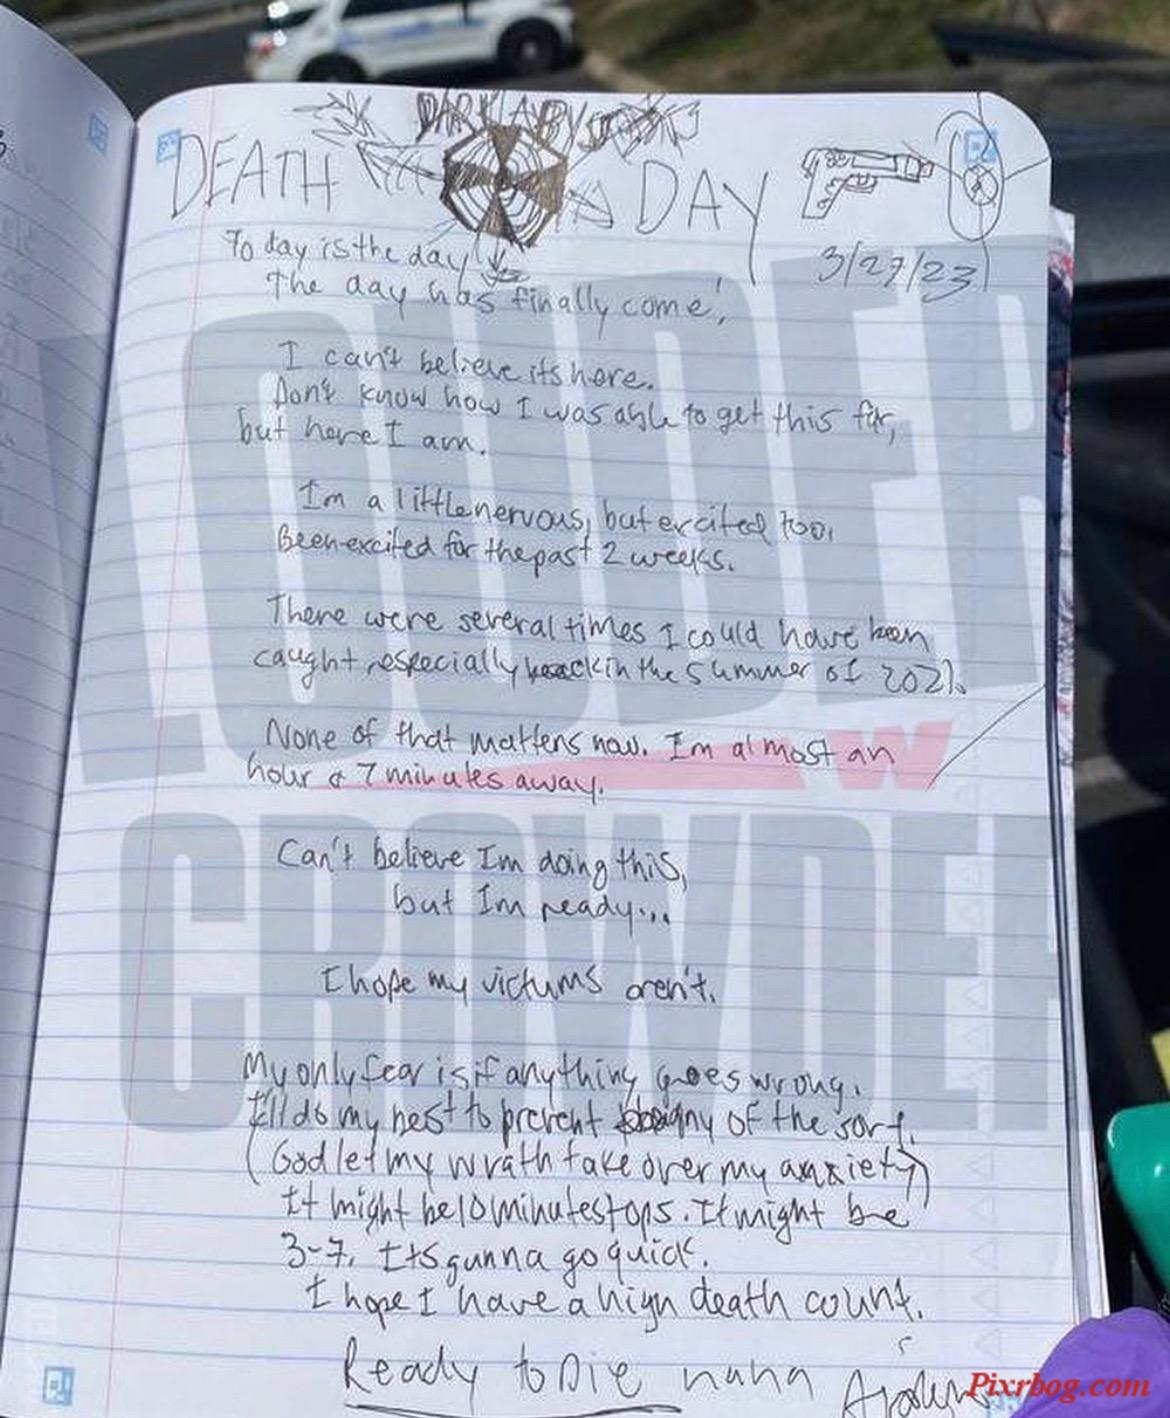 DARK ABYSS
DEATH DAY
3/27/23
Today is the day
The day has finally come!
I can't believe its here.
Don't know how I was able to get this far,
but here I am.
I'm a little nervous, but excited too.
Been excited for the past 2 weeks.
There were several times I could have been
caught, especially back in the summer of 2021.
None of that matters now. I'm almost an
hour & 7 minutes away.
Can't believe I'm doing this,
but I'm ready...
I hope my victums aren't.
My only fear is if anything goes wrong.
I'll do my best to prevent any of the sort.
(God let my wrath take over my anxiety)
It might be 10 minutes tops. It might be
3-7. Its gunna go quick.
I hope I have a high death count.
Ready to Die
LOUDER
W
CROWDER
Pixrbog.com